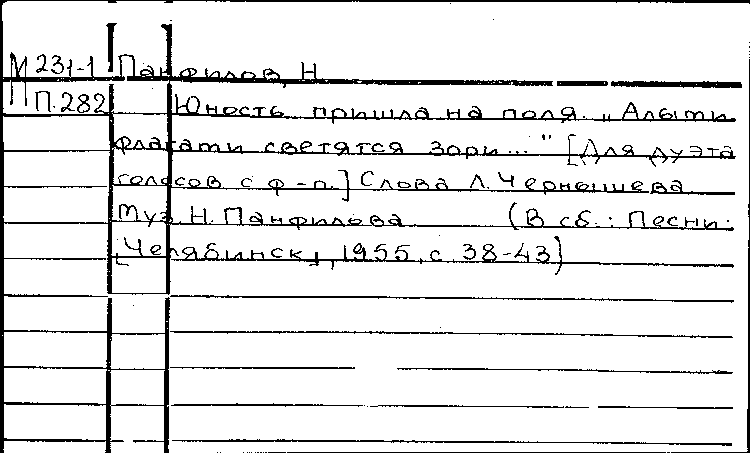 М 231-1 Панфилов, Н.
П.282 Юность пришла на поля. „Алыми
флагами светятся зори..." [Для дуэта
голосов с ф-п.] Слова Л. Чернышева.
Муз. Н. Панфилова (В сб.: Песни.
[Челябинск], 1955, с 38-43)